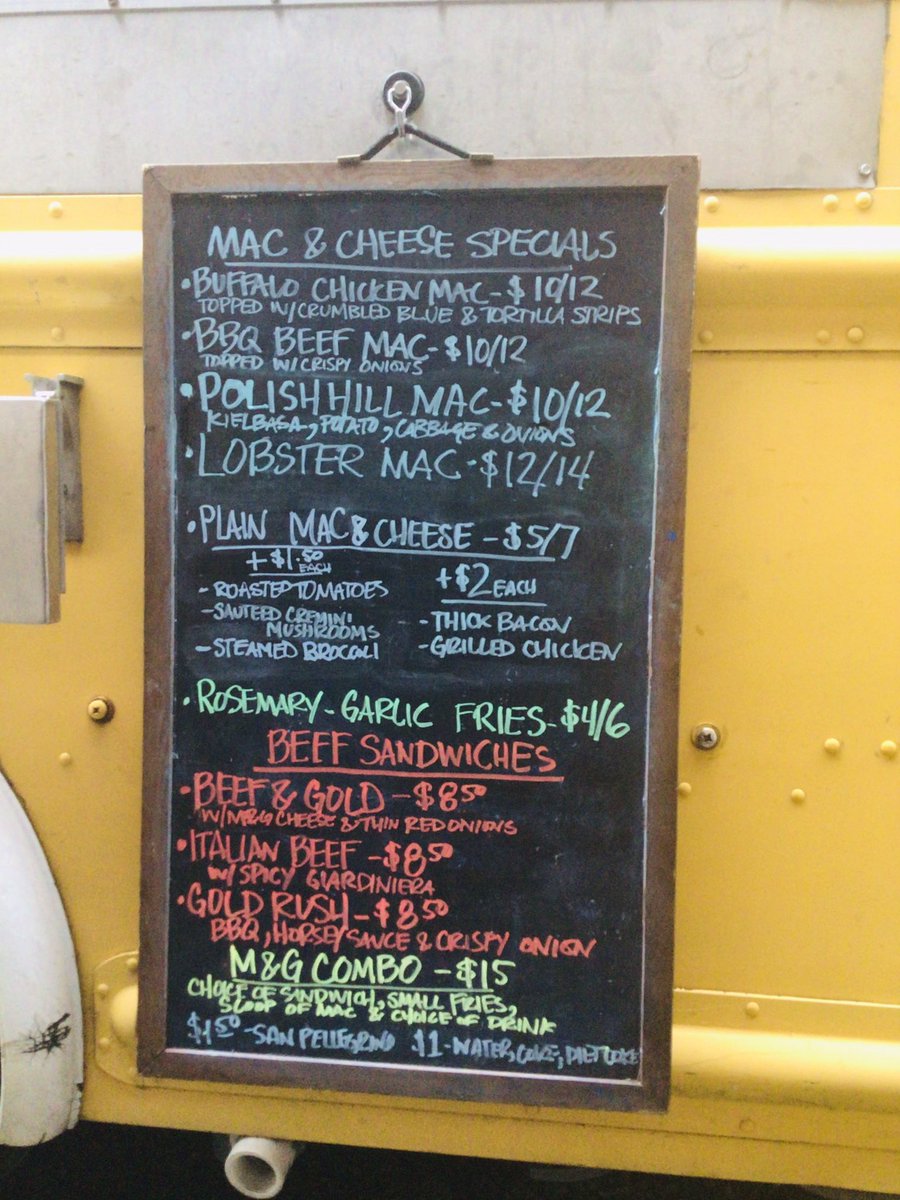 MAC & CHEESE SPECIALS
•BUFFALO CHICKEN MAC-$10/12
TOPPED W/CRUMBLED BLUE & TORTILLA STRIPS
•BBQ BEEF MAC-$10/12
TOPPED W/CRISPY ONIONS
•POLISH HILL MAC-$10/12
KIELBASA, POTATO, CABBAGE & ONIONS
•LOBSTER MAC-$12/14
•PLAIN MAC & CHEESE -$5/7
+$1.50 EACH
-ROASTED TOMATOES
-SAUTEED CREMINI
MUSHROOMS
-STEAMED BROCOLI
+$2 EACH
-THICK BACON
-GRILLED CHICKEN
•ROSEMARY-GARLIC FRIES-$4/6
BEEF SANDWICHES
•BEEF & GOLD -$8.50
W/M&G CHEESE & THIN RED ONIONS
•ITALIAN BEEF -$8.50
W/ SPICY GIARDINIERA
•GOLD RUSH-$8.50
BBQ, HORSEY SAUCE & CRISPY ONION
M&G COMBO -$15
CHOICE OF SANDWICH, SMALL FRIES,
SCOOP OF MAC & CHOICE OF DRINK
$1.50 -SAN PELLEGRINO $1-WATER, COKE, DIET COKE